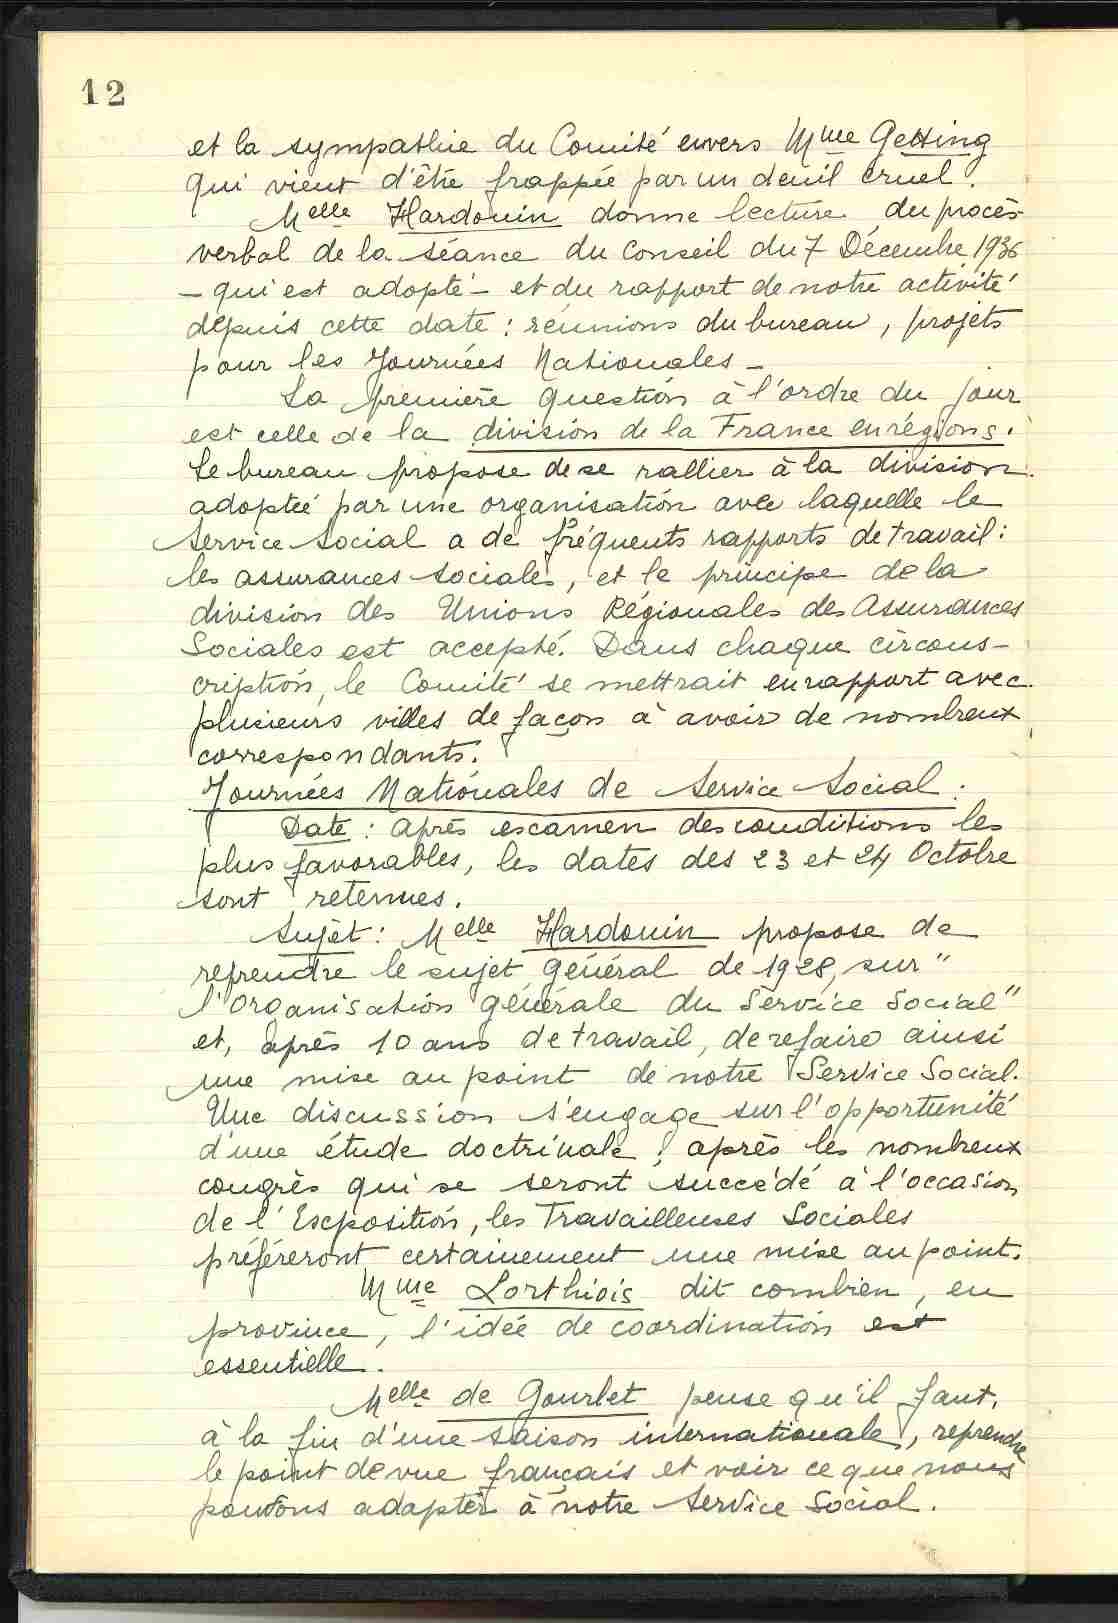 12
et la sympathie du Comité envers Mme Getting
qui vient d'être frappée par un deuil cruel.
Melle Hardouin donne lecture du procès-
verbal de la séance du Conseil du 7 Décembre 1936
- qui est adopté - et du rapport de notre activité
depuis cette date : réunions du bureau, projets
pour les Journées Nationales -
La première question à l'ordre du jour
est celle de la division de la France en régions.
Le bureau propose de se rallier à la division
adoptée par une organisation avec laquelle le
Service Social a de fréquents rapports de travail :
les assurances sociales, et le principe de la
division des Unions Régionales des Assurances
Sociales est accepté. Dans chaque circons-
cription, le Comité se mettrait en rapport avec
plusieurs villes de façon à avoir de nombreux
correspondants.
Journées Nationales de Service Social :
Date : après examen des conditions les
plus favorables, les dates des 23 et 24 Octobre
sont retenues.
Sujet : Melle Hardouin propose de
reprendre le sujet général de 1928, sur "
l'organisation générale du Service Social"
et, après 10 ans de travail, de refaire ainsi
une mise au point de notre Service Social.
Une discussion s'engage sur l'opportunité
d'une étude doctrinale ; après les nombreux
congrès qui se seront succédé à l'occasion
de l'Exposition, les Travailleuses Sociales
préféreront certainement une mise au point.
Mme Lorthiois dit combien, en
province, l'idée de coordination est
essentielle.
Melle de Gourlet pense qu'il faut,
à la fin d'une saison internationale, reprendre
le point de vue français et voir ce que nous
pouvons adapter à notre Service Social.